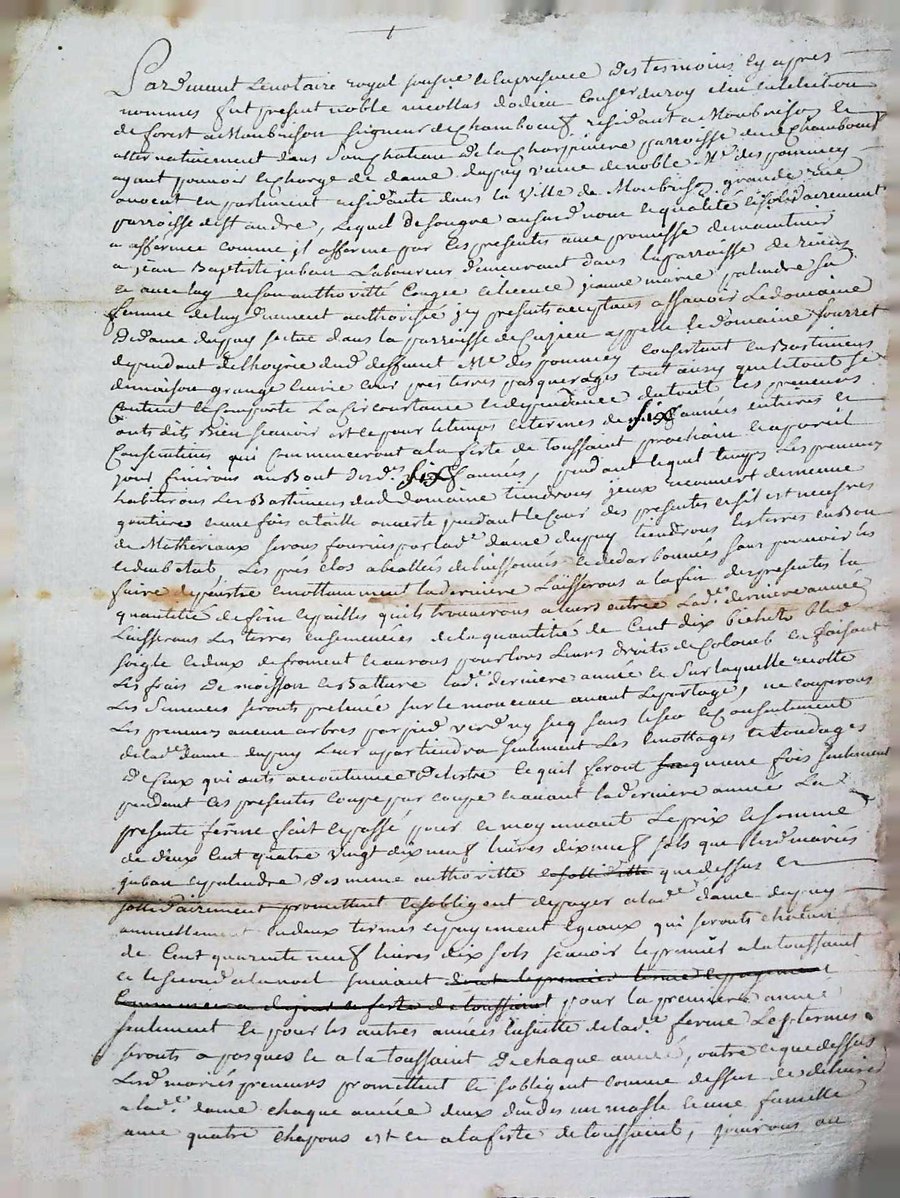 Pardevant le notaire royal soussigné et en presence des tesmoins cy apres
nommes fut present noble nicollas dadieu Conser du roy elu en l'election
de forest a Montbrison seigneur de Chamboeuf residant a Montbrison et
alternativement dans son chateau de la Charpiniere parroisse de Chamboeuf
ayant pouvoir et charge de dame dupuy veuve de noble Mre des pommey
avocat en parlement residante dans la Ville de Montbrison grande rue
parroisse de st andre, lequel de son gré aussy nom et qualité et solidairement
a affermée comme il afferme par ces presentes avec promesse de maintenir
a jean Baptiste juban Laboureur demeurant dans la parroisse de
et avec luy de son authoritté Congée et licence jeanne marie palandre sa
femme de luy duement authorisée icy presents acceptans assavoir Le domaine
de dame dupuy scitué dans la parroisse de Cuzieu appellé le domaine fourret
dependant de l'hoyrie dud deffunt Mre des pommey Consistant en Bastiments
de maison grange curie cour pres terres pasquerages tout ainsy que le tout se
Contient et Comporte La circonstance et dependance du tout les preneurs
onts dits Bien sçavoir et ce pour le temps et termes de six années entieres et
Consecutives qui Commenceront a la feste de toussaint prochain et a pareil
jour finirons au Bout desd. six années, pendant lequel temps Les preneurs
habiterons Les Bastiments dud domaine tiendrons iceux recouvert de menue
goutiere et une fois a taille ouverte pendant le Cour des presentes et s'il est necesres
de Matheriaux serons fournis par lade dame dupuy tiendrons les terres en Bon
et deub état Les pres clos abeallés debuissonnés et dedarbonnés sans pouvoir les
faire depaistre et nottamment la derniere Laisserons a la fin des presentes la
quantitié de foin et pailles quils trouverons a leurs entrée Lade derniere année
Laisserons Les terres ensemencées de la quantitié de Cent dix bichets bled
soigle et deux de froment et aurons pour tous Leurs droits de Colomb en faisant
Les frais de moisson et Batture lade derniere année et Sur laquelle recolte
Les Semences serons prelevée sur le monceau avant Le partage, ne couperons
Les preneurs aucun arbres par pied verd ny secq sans le sceu et Consentement
de lade dame dupuy Leur apartiendra seulement Les emottages et tondages
de Ceux qui onts accoutumée d'estre et quil feront qu'une fois seulement
pendant Les presentes coupe par coupe et avant la derniere année La
presente ferme fait et passé pour et moyennant Le prix et somme
de deux Cent quatre vingt dix neuf livres dix neuf sols que Lesd mariés
juban et palandre des meme authoritté et sollidité que dessus et
sollidairement promettent et sobligent de payer a lade dame dupuy
annuellement en deux termes et payement egaux qui serouts chacun
de Cent quarente neuf livres dix sols scavoir le premier a la toussaint
et le second a la noel suivant dont le premier terme et payement
Commencera au jour et feste de toussaint pour la premiere année
seulement et pour les autres années ensuitte de lade ferme Les termes
serouts a pasques et a la toussaint de chaque année, outre ce que dessus
Lesd mariés preneurs promettent et sobligent comme dessus de delivrer
a lade dame chaque année deux dindes un masle et une famille
avec quatre chapons et ce a la feste de toussaint, jouirons au